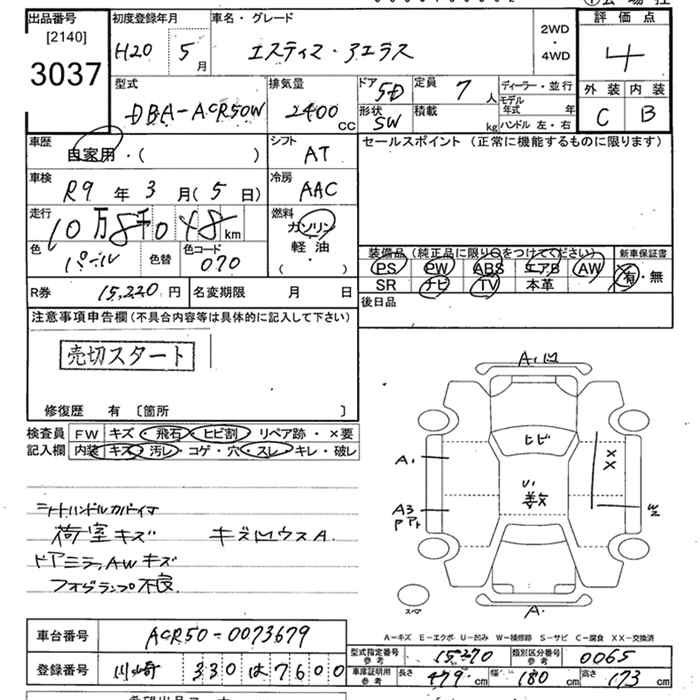 出品番号
[2140]
3037
初度登録年月
H20 5 月
車名・グレード
エスティマ・アエラス
2WD
・
4WD
評価点
4
外装 内装
C B
型式
DBA-ACR50W
排気量
2400 CC
ドア 5D
形状 SW
定員 7 人
積載 kg
ディーラー・並行
モデル年式 年
ハンドル 左・右
車歴
自家用・( )
シフト
AT
セールスポイント (正常に機能するものに限ります)
車検
R9 年 3 月 ( 5 日)
冷房
AAC
走行
10万8千048 km
燃料
ガソリン
軽油
( )
色
パール
色替
色コード
070
装備品 (純正品に限り○をつけてください) 新車保証書
PS PW ABS エアB AW 有・無
SR ナビ TV 本革
R券 15,220 円 名変期限 月 日
後日品
注意事項申告欄 (不具合内容等は具体的に記入して下さい)
売切スタート
修復歴 有 〔箇所 〕
検査員 FW キズ・飛石・ヒビ割・リペア跡・×要
記入欄 内装 キズ・汚レ・コゲ・穴・スレ・キレ・破レ
荷室キズ
ドアミラ,AWキズ
フォグランプ不良
A.凹
ヒビ
A1
A3
XX
A.
スペア
A-キズ E-エクボ U-凹み W-補修跡 S-サビ C-腐食 XX-交換済
車台番号 ACR50-0073679
登録番号 川崎 330 は 7600
型式指定番号 参考 15270 類別区分番号 参考 0065
車庫証明用 参考 長さ 479 cm 幅 180 cm 高さ 173 cm